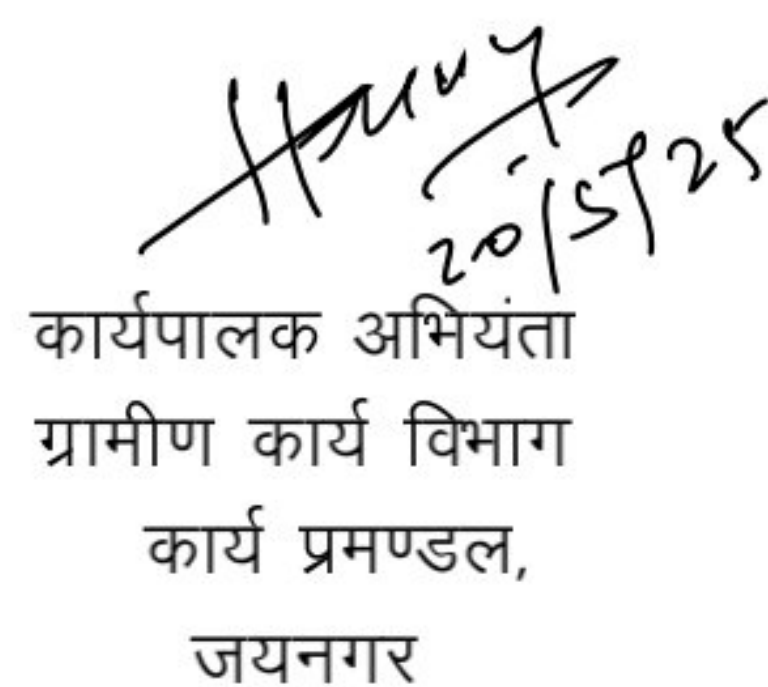 20/5/25
कार्यपालक अभियंता
ग्रामीण कार्य विभाग
कार्य प्रमण्डल,
जयनगर